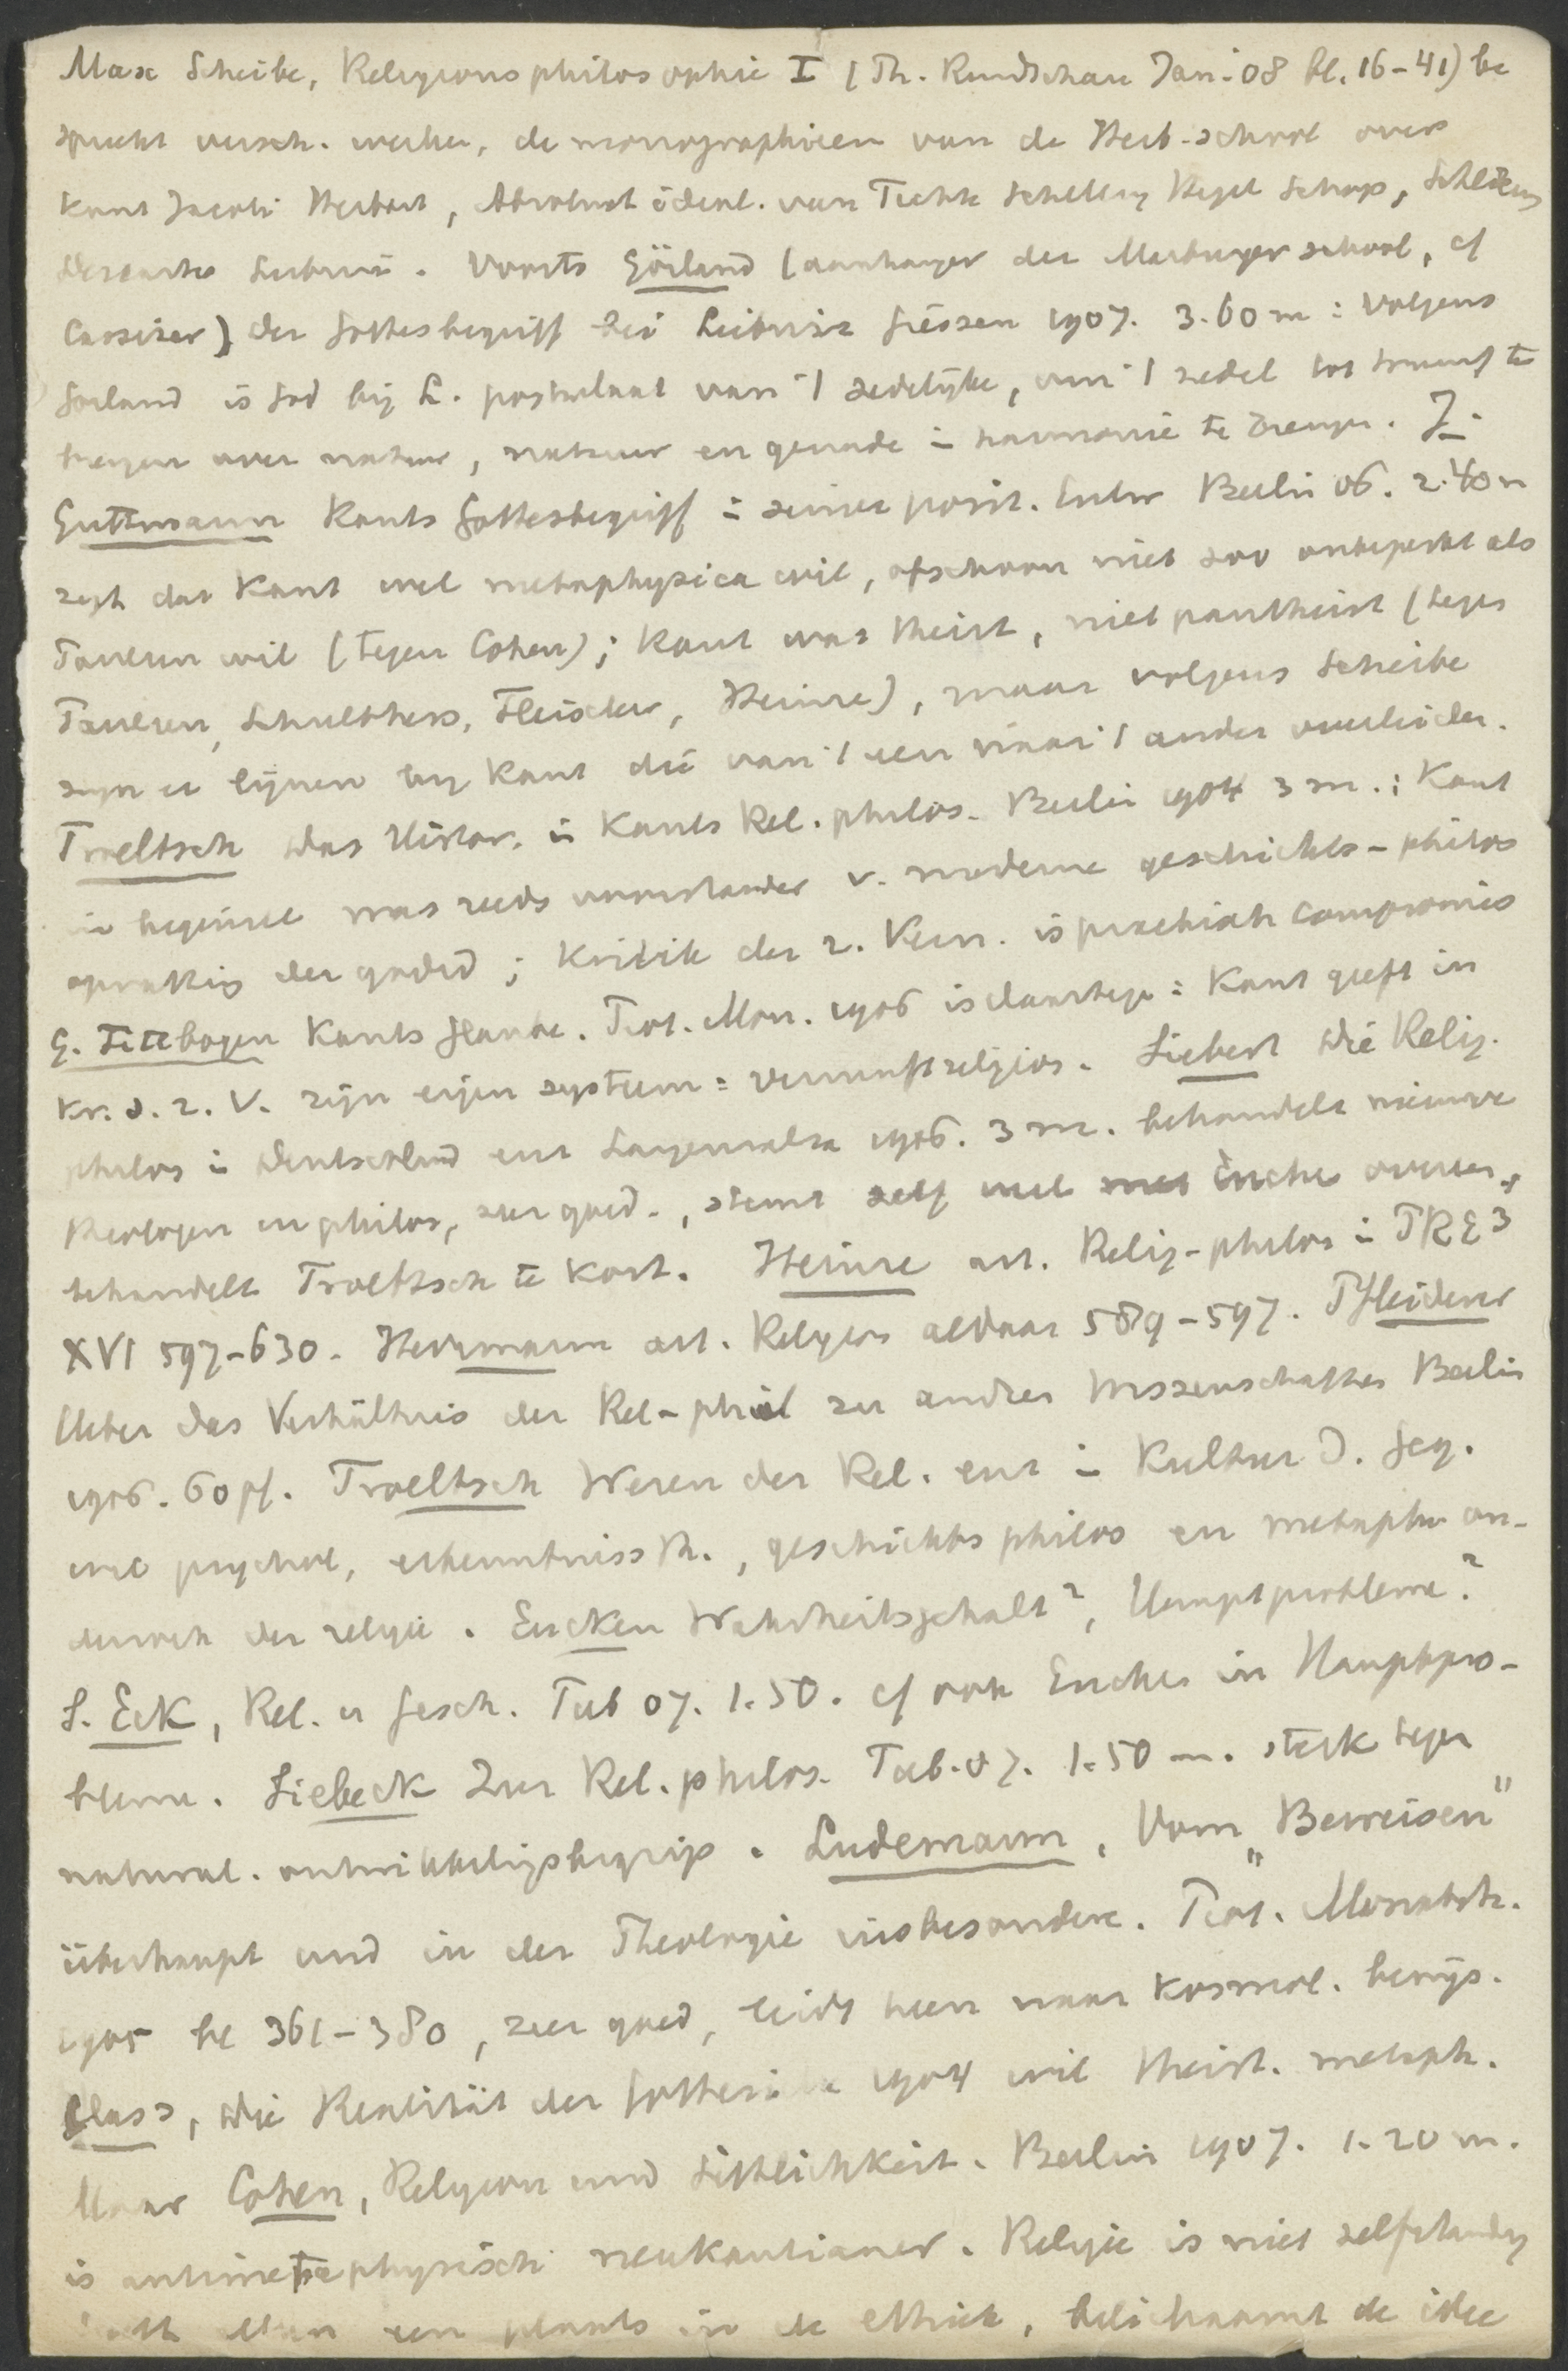 Max Scheibe, Religionsphilosophie I (Th. Rundschau Jan. 08 bl. 16-41) be
spreekt versch. werken, de monographieen van de Herb-school over
Kant Jacobi Herbart, Absolut ideal. van Fichte Schelling Hegel Schop,
Descartes Leibniz. Voorts Görland (aanhanger der Marburger school, cf
Cassirer) der Gottesbegriff bei Leibniz Giessen 1907. 3.60 m: volgens
Gorland is God bij L. postulaat van 't zedelijke, om 't zedel tot triumf te
brengen over natuur, natuur en genade in harmonie te brengen. J.
Guttmann Kants Gottesbegriff in seiner posit. Entw Berlin 06. 2.40 m
zegt dat Kant wel metaphysica wil, ofschoon niet zoo onbeperkt als
Paulsen wil (tegen Cohen); Kant was theist, niet pantheist (tegen
Paulsen, Schulthess, Heinze), maar volgens Scheibe
zyn er lijnen by Kant die van 't een naar 't ander overleiden.
Troeltsch Das Histor. in Kants Rel. philos. Berlin 1904 3 m.: Kant
in beginsel was reeds voorstander v. moderne geschichts-philos
opvatting der godsd; Kritik der r. Vern. is compromis
E. Fittbogen Kants Glaube. Prot. Mon. 1906 is daartegen: Kant geeft in
Kr. d. r. V. zijn eigen systeem = vernunftreligion. Siebert Die Relig.
philos in Deutschland enz Langensalza 1906. 3 m. behandelt nieuwere
theologen en philos, zeer goed., stemt zelf met Eucken overeen,
behandelt Troeltsch te kort. Heinze art. Relig-philos in PRE3
XVI 597-630. Herrmann art. Religion aldaar 589-597. Pfleiderer
Ueber das Verhältnis der Rel-phil zu andren Wissenschaften Berlin
1906. 60 pf. Troeltsch Wesen der Rel. enz in Kultur d. Geg.
wil psychol, erkenntnissth., geschichtsphilos en metaphs on-
derzoek der religie. Eucken Wahrheitsgehalt2, Hauptprobleme2
S. Eck, Rel. u Gesch. Tub 07. 1.50. cf ook Eucken in Hauptpro-
bleme. Siebeck Zur Rel. philos. Tub. 07. 1.50 m. sterk tegen
natural. ontwikkelingsbegrip. Ludemann, Vom „Beweisen"
überhaupt und in der Theologie insbesondere. Prot. Monatsh.
1905 bl 361-380, zeer goed, leidt heen naar kosmol. bewijs.
Class, Die Realität der Gottesidee 1904 wil theist. metaph.
Maar Cohen, Religion und Sittlichkeit. Berlin 1907. 1.20 m.
is antimetaphysisch neukantianer. Religie is niet zelfstandig
een plaats in de ethiek, belichaamt de idee